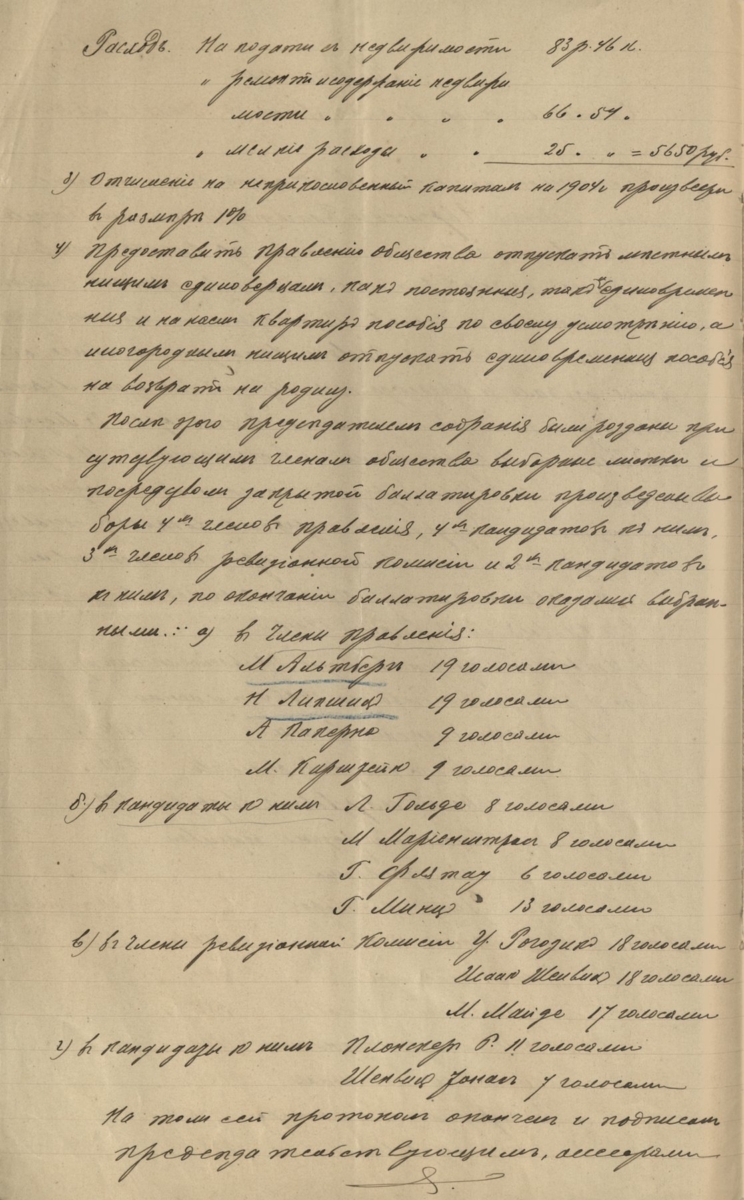 Расходъ. На подати съ недвижимости 83 р. 46 к.
" ремонтъ и содержаніе недвижи
мости " " " " 66 " 54 "
" мелкіе расходы " " 25 " " = 5650 руб.
3) Отчисленіе на неприкосновенный капиталъ на 1904 г произвести
въ размѣрѣ 1%
4) Предоставить правленію общества отпускать мѣстнымъ
нищимъ единоверцамъ, какъ постоянныя, такъ единовремен
ныя и на наемъ квартиръ пособія по своему усмотрѣнію, а
иногороднымъ нищимъ отпускать единовременныя пособія
на возвратъ на родину.
Послѣ этого предсѣдателемъ собранія были розданы при
сутствующимъ членамъ общества выборные листки и
посредствомъ закрытой баллатировки произведены вы
боры 4хъ членовъ правленія, 4хъ кандидатовъ къ нимъ,
3хъ членовъ ревизіонной комисіи и 2хъ кандидатовъ
къ нимъ, по окончаніи баллатировки оказались выбран-
ными: а) въ члены правленія:
М Альтберъ 19 голосами
Н Липшицъ 19 голосами
А Паперно 9 голосами
М. Киршейнъ 9 голосами
б) въ кандидаты къ нимъ Л. Гольде 8 голосами
М Маріенштрасъ 8 голосами
Г. Флятау 6 голосами
Г. Минцъ 13 голосами
в) въ члены ревизіонной комисіи У. Рогозикъ 18 голосами
Исаакъ Шенвицъ 18 голосами
М. Майде 17 голосами
г) въ кандидаты къ нимъ Плонскеръ Р. 11 голосами
Шенвицъ Іонасъ 7 голосами
На томъ сей протоколъ оконченъ и подписанъ
предсѣдательствующимъ, ассесорами